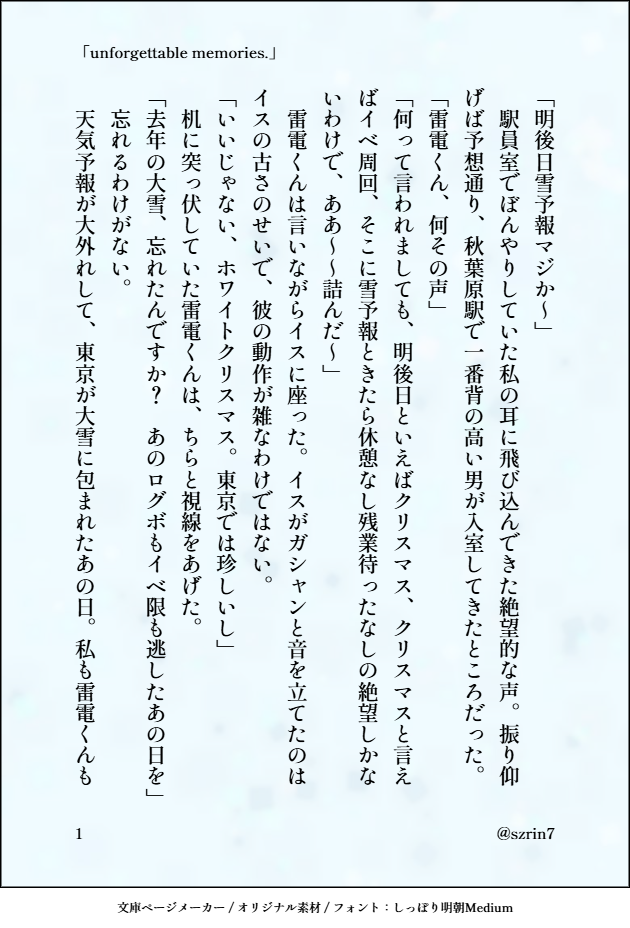 「unforgettable memories.」
「明後日雪予報マジか〜」
　駅員室でぼんやりしていた私の耳に飛び込んできた絶望的な声。振り仰
げば予想通り、秋葉原駅で一番背の高い男が入室してきたところだった。
「雷電くん、何その声」
「何って言われましても、明後日といえばクリスマス、クリスマスと言え
ばイベ周回、そこに雪予報ときたら休憩なし残業待ったなしの絶望しかな
いわけで、ああ〜〜詰んだ〜」
　雷電くんは言いながらイスに座った。イスがガシャンと音を立てたのは
イスの古さのせいで、彼の動作が雑なわけではない。
「いいじゃない、ホワイトクリスマス。東京では珍しいし」
　机に突っ伏していた雷電くんは、ちらと視線をあげた。
「去年の大雪、忘れたんですか？　あのログボもイベ限も逃したあの日を」
　忘れるわけがない。
　天気予報が大外れして、東京が大雪に包まれたあの日。私も雷電くんも
1
@szrin7
文庫ページメーカー / オリジナル素材 / フォント：しっぽり明朝Medium